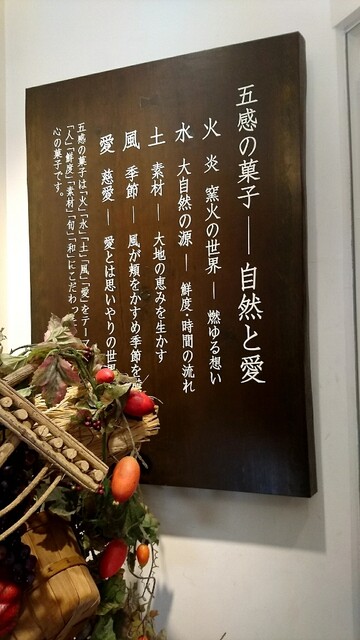 五感の菓子——自然と愛
火 炎 窯火の世界 — 燃ゆる想い
水 大自然の源 — 鮮度・時間の流れ
土 素材 — 大地の恵みを生かす
風 季節 — 風が頬をかすめ季節を
愛 慈愛 — 愛とは思いやりの世
五感の菓子は、「火」「水」「土」「風」「愛」をテーマ
「人」「鮮度」「素材」「旬」「和」にこだわっ
心の菓子です。